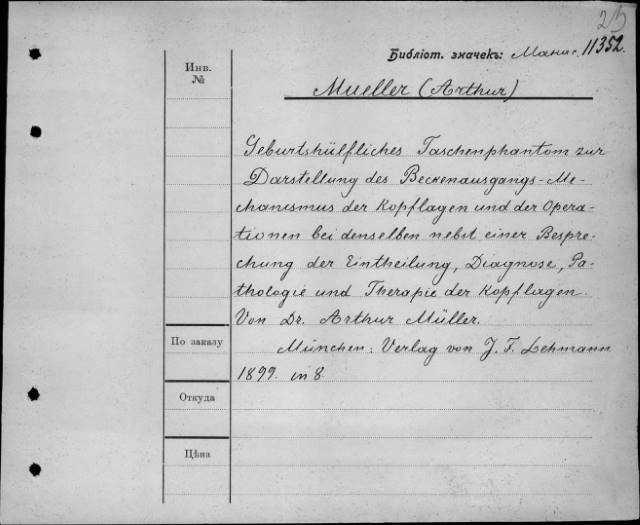 25
Библіот. значекъ: Манис. 11352.
Инв.
№
Mueller (Arthur)
Geburtshülfliches Taschenphantom zur
Darstellung des Beckenausgangs-Me-
chanismus der Kopflagen und der Opera-
tionen bei denselben nebst einer Bespre-
chung der Eintheilung, Diagnose, Pa-
thologie und Therapie der Kopflagen.
Von Dr. Arthur Müller.
По заказу
München: Verlag von J. F. Lehmann
1899. in 8.
Откуда
Цѣна